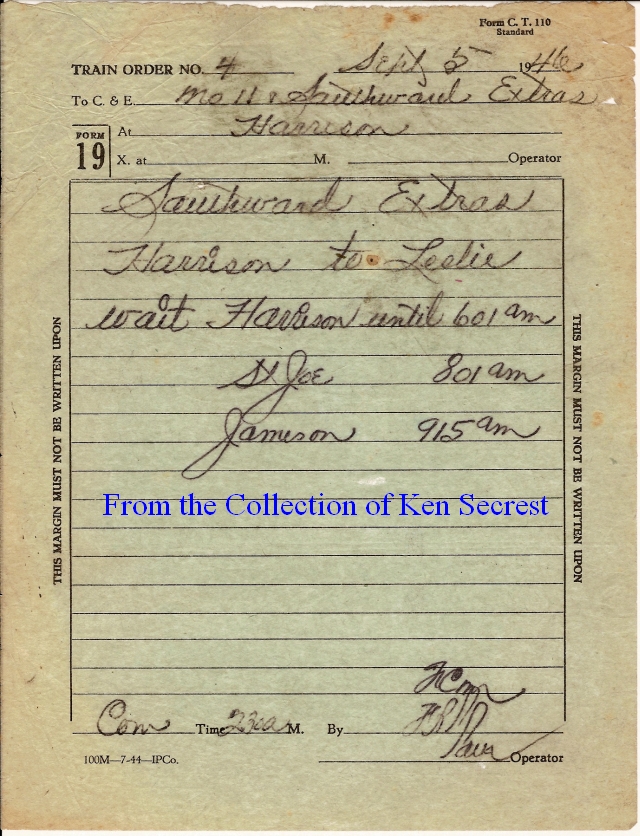 Form C. T. 110
Standard
TRAIN ORDER NO. 4 Sept 5 1946
To C. & E. No 11 & Southward Extras
FORM
19
At Harrison
X. at M. Operator
Southward Extras
Harrison to Leslie
wait Harrison until 601 am
St Joe 801 am
Jameson 915 am
From the Collection of Ken Secrest
THIS MARGIN MUST NOT BE WRITTEN UPON
THIS MARGIN MUST NOT BE WRITTEN UPON
Com Time 230a M. By
100M—7-44—IPCo. Operator